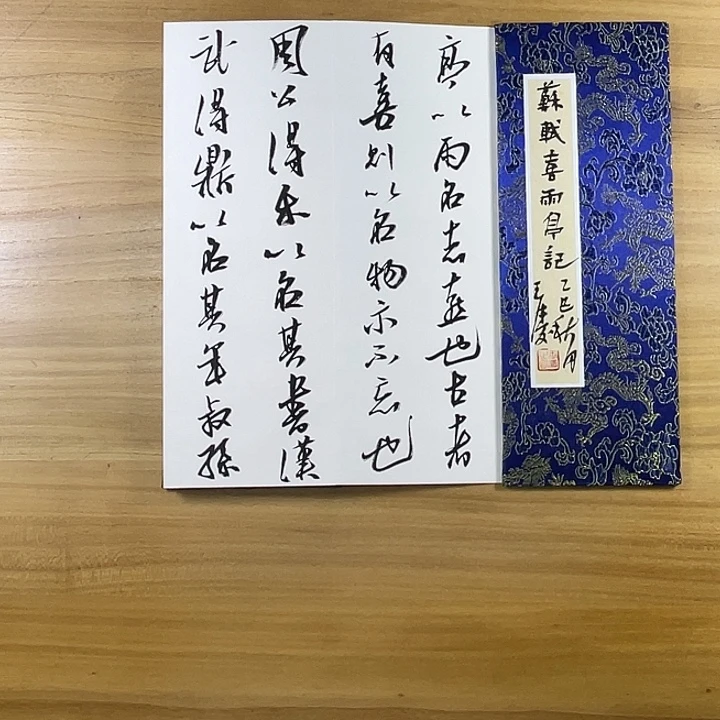 蘇軾喜雨亭記
乙巳秋月
王
亭以雨名志喜也古者
有喜則以名物示不忘也
周公得禾以名其書漢
武得鼎以名其年叔孫